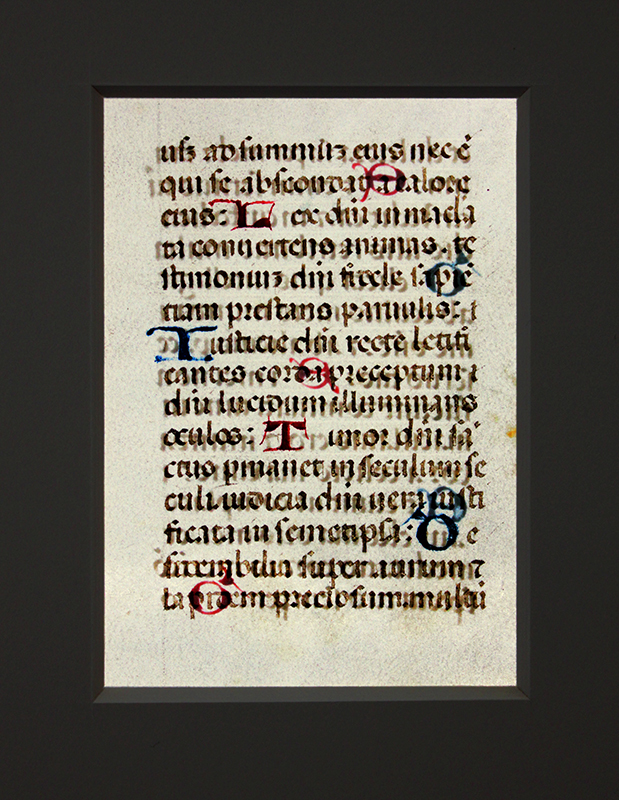 usqꝫ ad summuꝫ eius nec ē
qui se abscondat a calore
eius: Lex dn̄i inmacla
ta conuertens animas. te
stimoniuꝫ dn̄i fidele sapiē
tiam prestans paruulis:
Iusticie dn̄i recte letifi
cantes corda preceptum
dn̄i lucidum illuminans
oculos: Timor dn̄i sā
ctus pmanet in seculum se
culi. iudicia dn̄i uera iusti
ficata in semetipsa: De
siderabilia super aurum ⁊
lapidem preciosum. multū